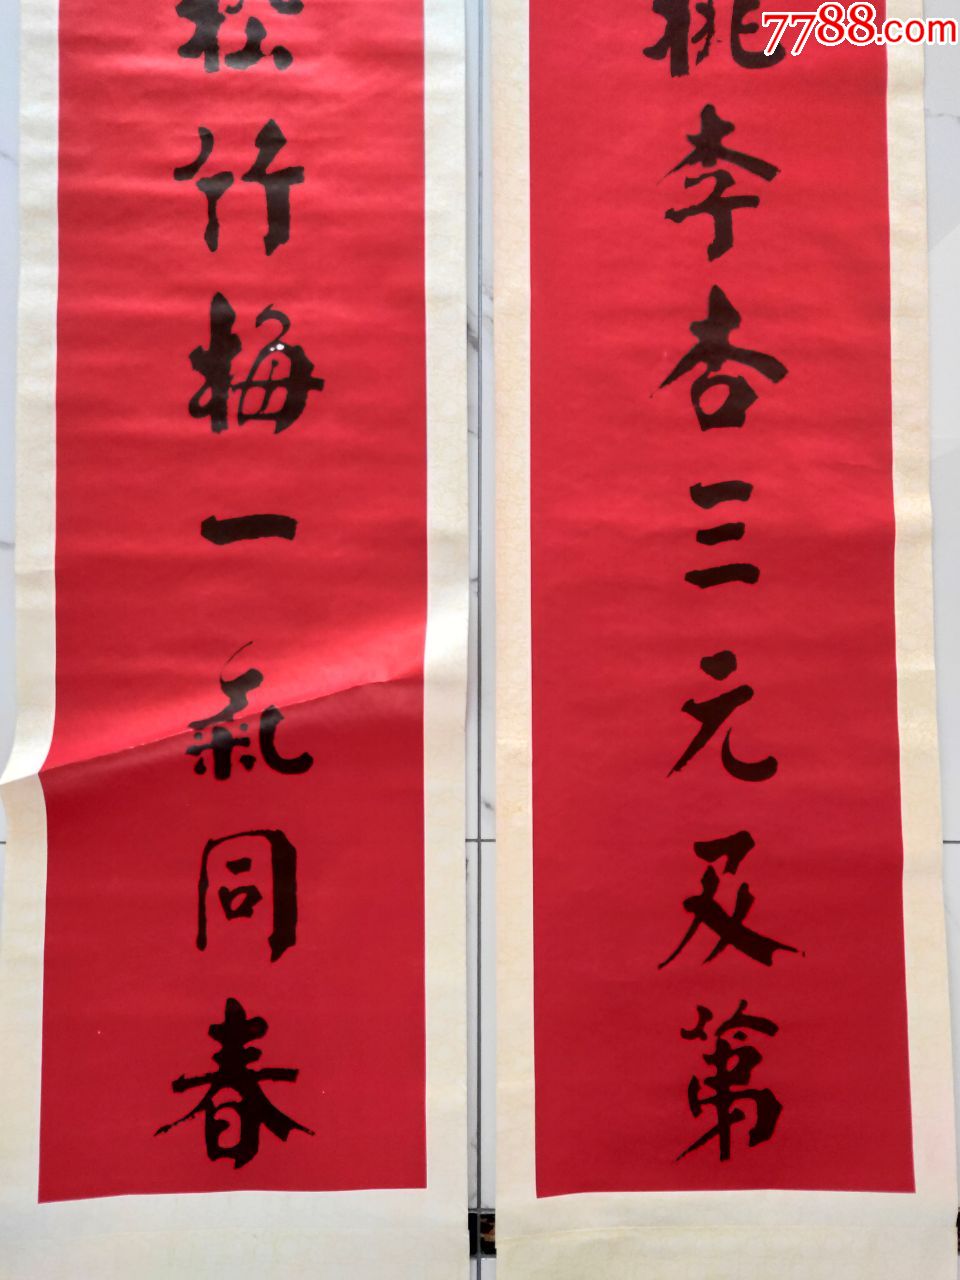 7788.com
桃李杏三元及第
松竹梅一氣同春